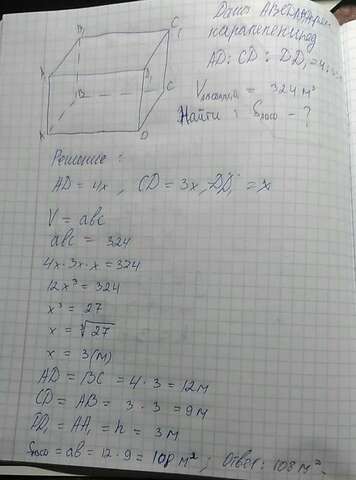 Дано: ABCDA
параллелепипед
AD : CD : DD₁ = 4 :
V = 324 м³
Найти : Sосн - ?
B₁
C₁
A₁
D₁
B
C
A
D
Решение :
AD = 4x , CD = 3x, DD₁ = x
V = abc
abc = 324
4x · 3x · x = 324
12x³ = 324
x³ = 27
x = ∛27
x = 3(м)
AD = BC = 4 · 3 = 12 м
CD = AB = 3 · 3 = 9 м
DD₁ = AA₁ = h = 3 м
Sосн = ab = 12 · 9 = 108 м² ; Ответ : 108 м²